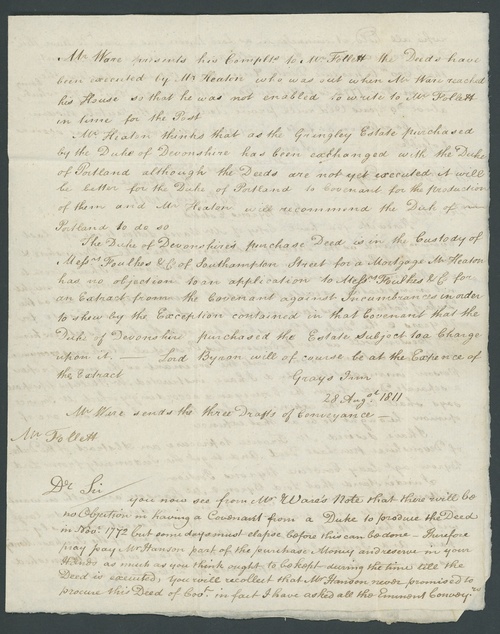 Mr Ware presents his Complts to Mr Follett the Deeds have
been executed by Mr Heaton who was out when Mr Ware reached
his House so that he was not enabled to write to Mr Follett
in time for the Post
Mr Heaton thinks that as the Gringley Estate purchased
by the Duke of Devonshire has been exchanged with the Duke
of Portland although the Deeds are not yet executed it will
be better for the Duke of Portland to Covenant for the production
of them and Mr Heaton will recommend the Duke of
Portland to do so
The Duke of Devonshires purchase Deed is in the Custody of
Messrs Foulkes & Co of Southampton Street for a Mortgage Mr Heaton
has no objection to an application to Messrs Foulkes & Co for
an Extract from the Covenant against Incumbrances in order
to shew by the Exception contained in that Covenant that the
Duke of Devonshire purchased the Estate subject to a Charge
upon it. — Lord Byron will of course be at the Expence of
the Extract
Grays Inn
28 Augst 1811
Mr Ware sends the three Drafts of Conveyance —
Mr Follett
Dr Sir
You now see from Mr Ware's Note that there will be
no Objection in having a Covenant from a Duke to produce the Deed
in Novr 1772 but some days must elapse before this can be done — Therefore
pray pay Mr Hanson part of the purchase Money and reserve in your
Hands as much as you think ought to be kept during the time till the
Deed is executed, You will recollect that Mr Hanson never promised to
procure this Deed of Covt in fact I have asked all the Eminent Conveyrs